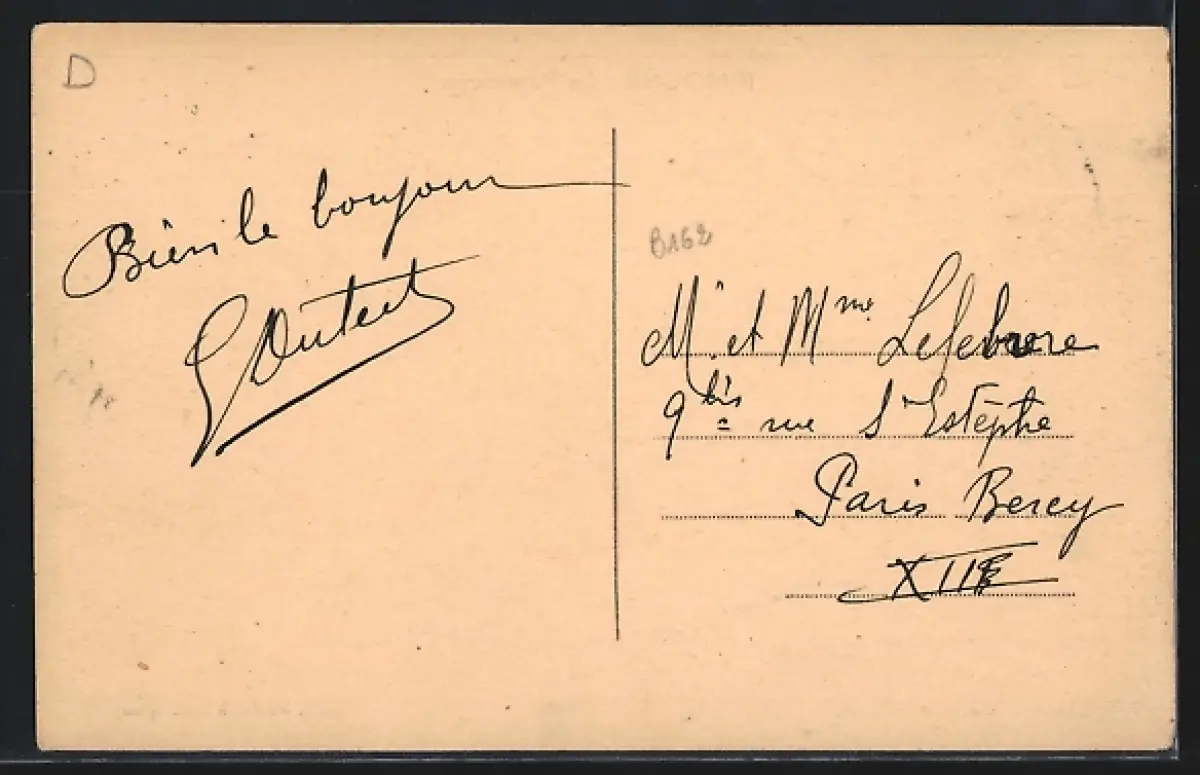 D
Bien le bonjour
G Dutert
B162
Mr et Mme Lefebvre
9 bis rue St Estèphe
Paris Bercy
XIIE